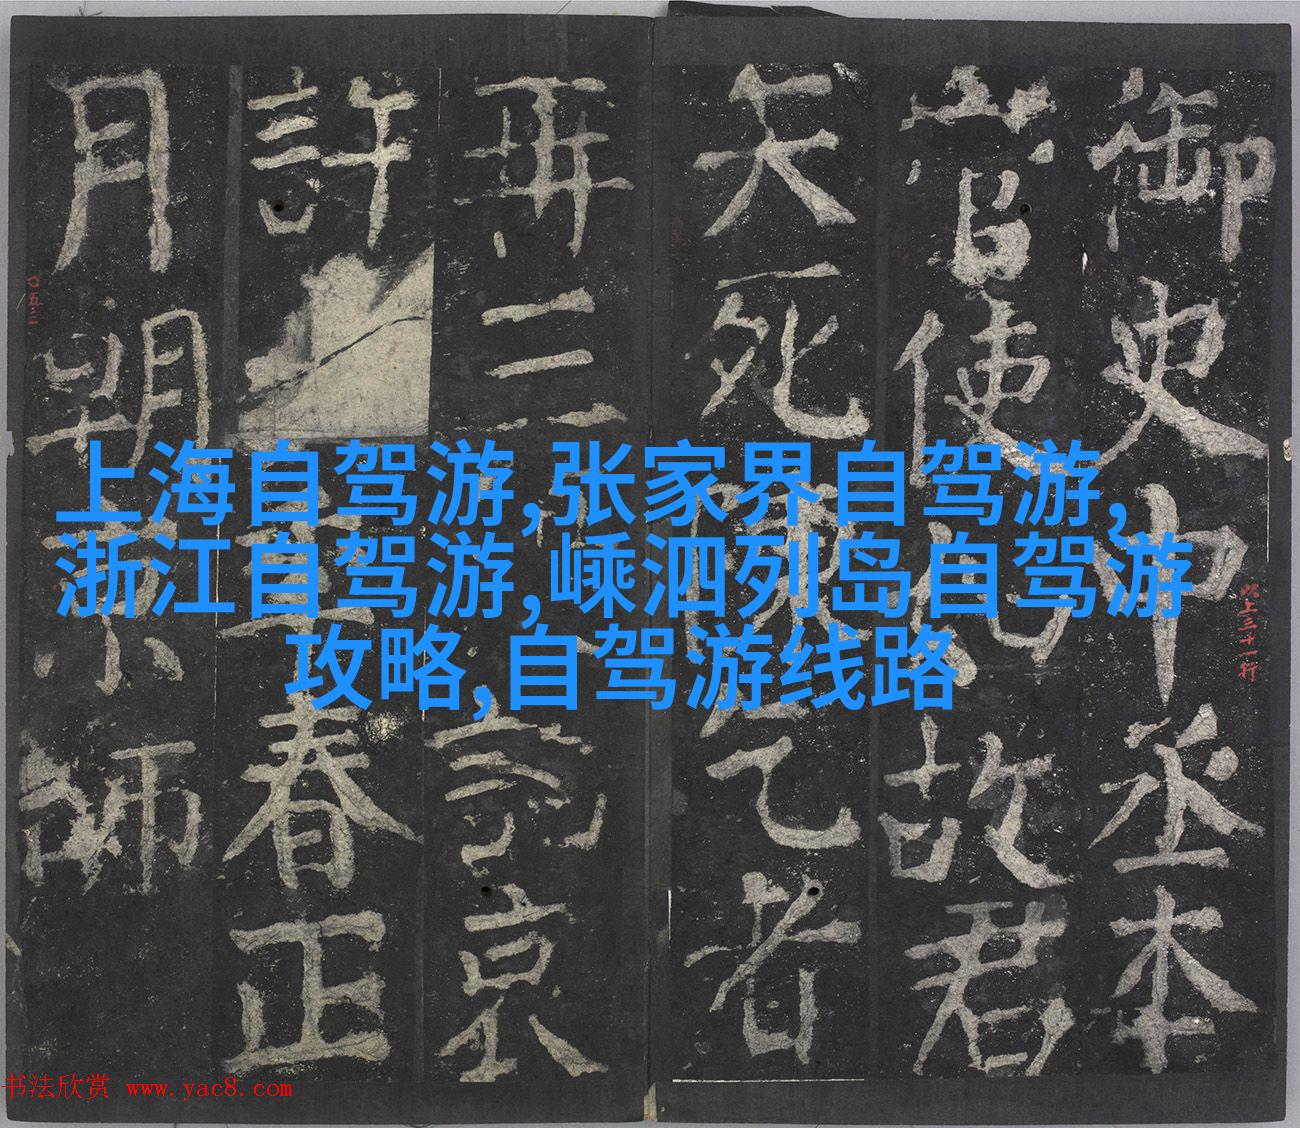 御史中丞本
使故君
死乞者
再三京
許春正
月朔京師
以上三十一行
〇五三
上海自驾游,张家界自驾游,
浙江自驾游,嵊泗列岛自驾游
攻略,自驾游线路
书法欣赏 www.yac8.com